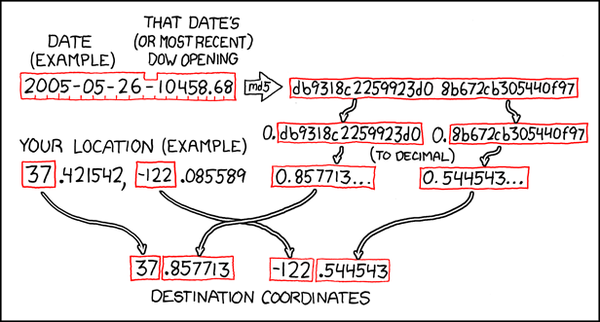 DATE (EXAMPLE)
THAT DATE'S (OR MOST RECENT) DOW OPENING
2005-05-26-10458.68
md5
db9318c2259923d0 8b672cb305440f97
0.db9318c2259923d0
0.8b672cb305440f97
(TO DECIMAL)
YOUR LOCATION (EXAMPLE)
37.421542, -122.085589
0.857713...
0.544543...
37.857713
-122.544543
DESTINATION COORDINATES